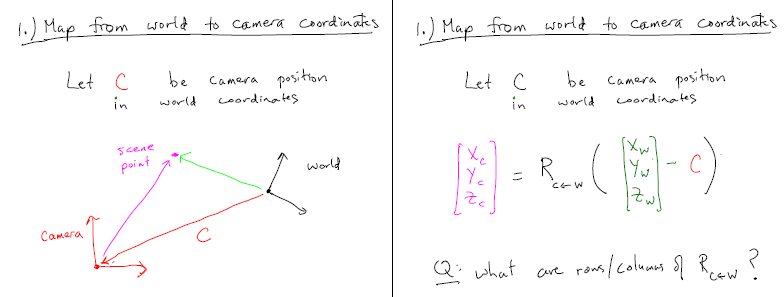 1.) Map from world to camera coordinates
Let C be camera position
in world coordinates
scene
point
world
Camera
C
1.) Map from world to camera coordinates
Let C be camera position
in world coordinates
[Xc Yc Zc] = R C←W ([Xw Yw Zw] - C)
Q: what are rows/columns of R C←W ?